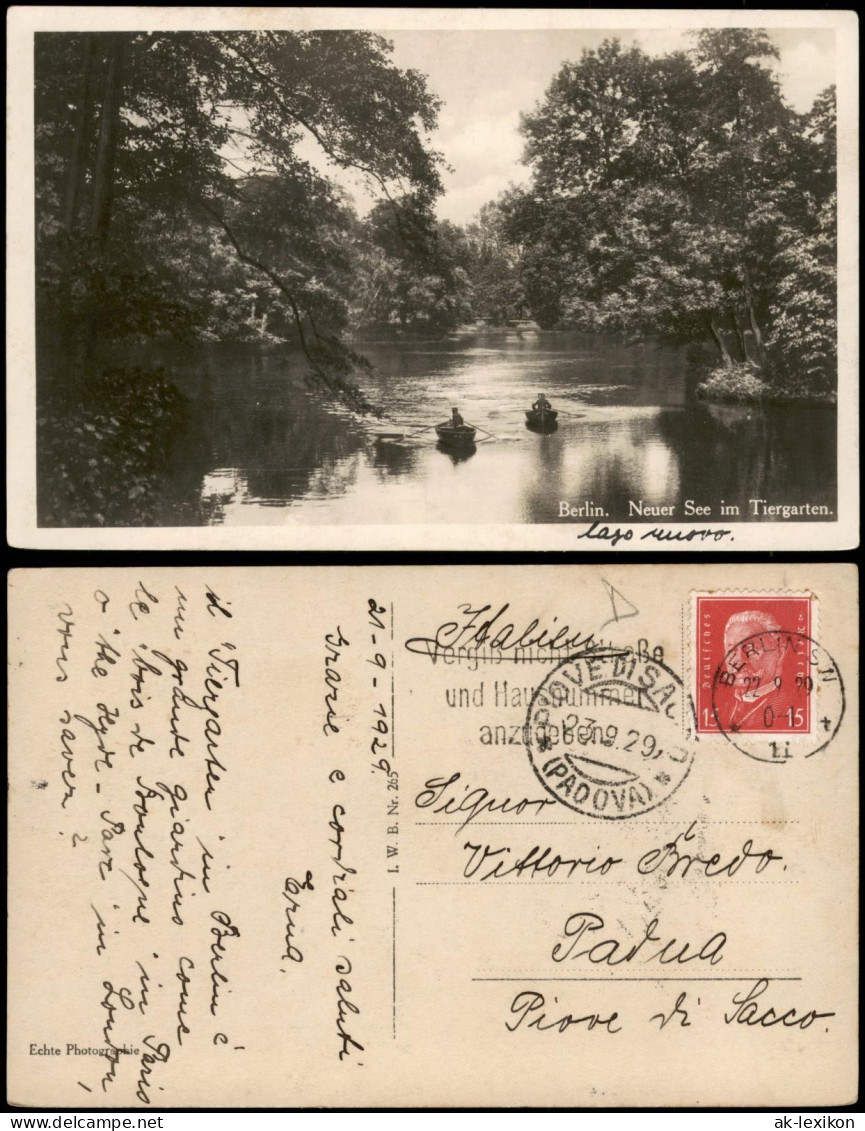 Berlin. Neuer See im Tiergarten.
lago nuovo.
21-9-1929.
Grazie e cordiali saluti
Erna.
il Tiergarten in Berlin é
un grande giardino come
le bois de Boulogne in Paris
o the Hyde-Parc in London,
vous saver?
Echte Photographie
I. W. B. Nr. 265
Italien
Vergiß nicht Straße
und Hausnummer
anzugeben
PIOVE DI SACCO
23.9.29
(PADOVA)
Deutsches Reich
15 15
BERLIN SW
22.9.29
11
Signor
Vittorio Bredo.
Padua
Piove di Sacco.
ak-lexikon